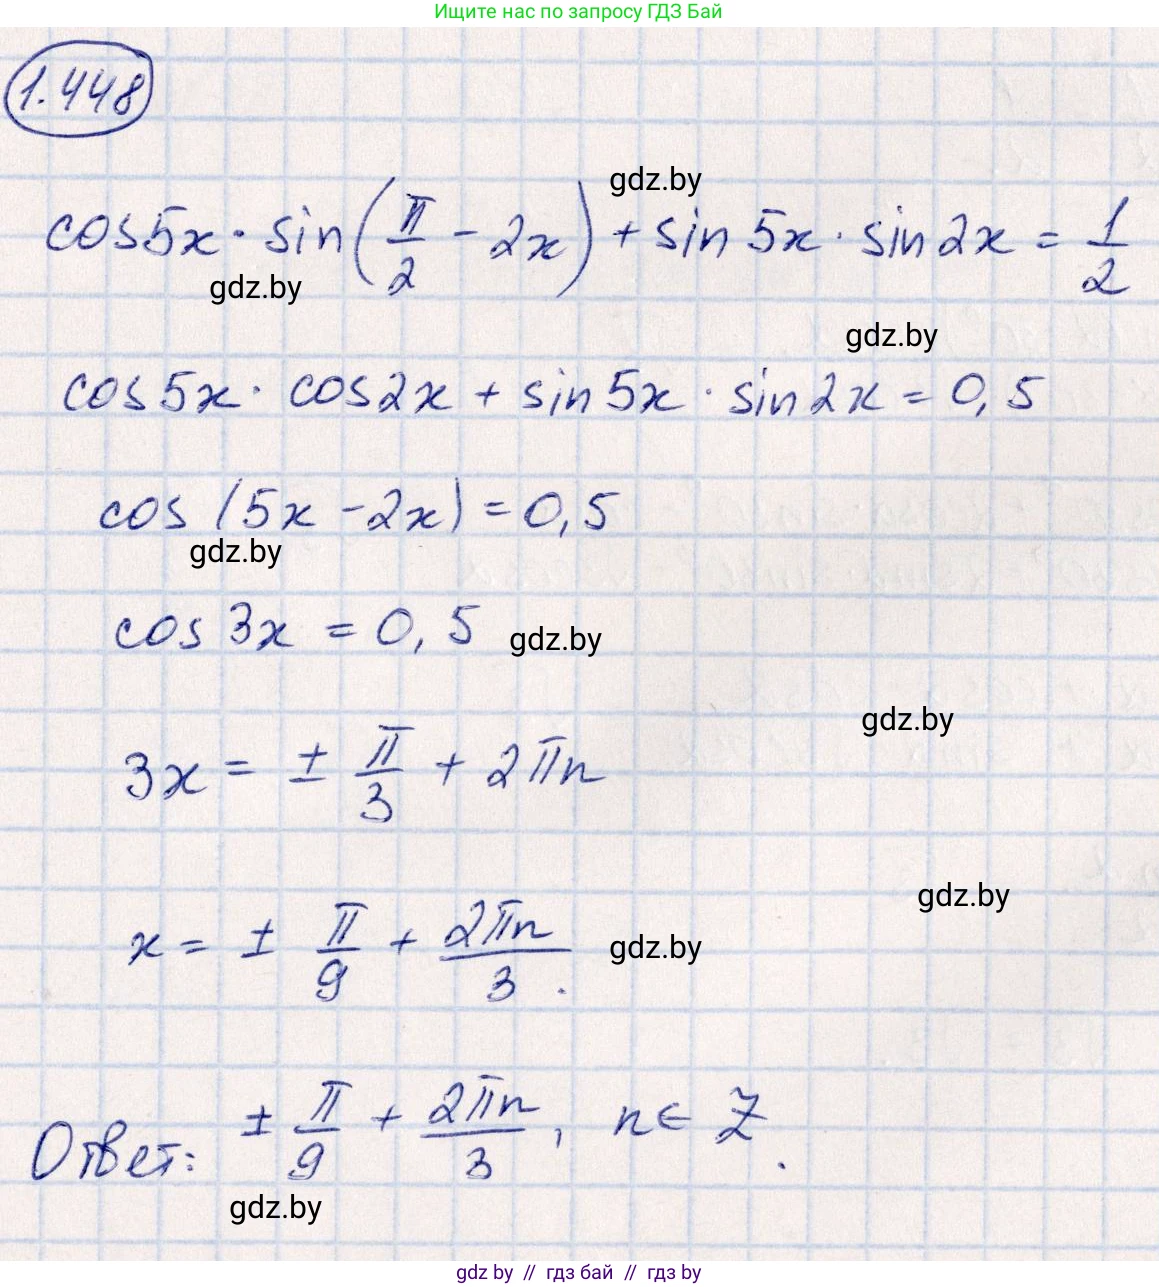 Ищите нас по запросу ГДЗ Бай
1.448
gdz.by
cos5x · sin(π/2 - 2x) + sin 5x · sin 2x = 1/2
gdz.by
gdz.by
cos 5x · cos2x + sin 5x · sin 2x = 0,5
cos (5x - 2x) = 0,5
gdz.by
cos 3x = 0,5
gdz.by
gdz.by
3x = ± π/3 + 2πn
gdz.by
x = ± π/9 + 2πn/3.
gdz.by
Ответ: ± π/9 + 2πn/3, n ∈ Z.
gdz.by
gdz by // гдз бай // гдз by